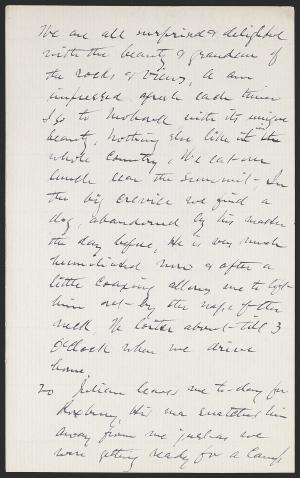 We are all surprised & delighted
with the beauty & grandeur of
the rocks & views, & am
impressed afresh each time
I go to Mohonk with its unique
beauty, nothing else like it in the
whole country. We eat our
lunch near the summit. In
the big crevice we find a
dog, abandoned by his master
the day before. He is very much
humiliated now & after a
little coaxing allows me to lift
him out by the nape of the
neck. We loiter about till 3
o'clock when we drive
home.
20 Julian leaves me to-day for
Roxbury, His ma snatches him
away from me just as we
were getting ready for a camp